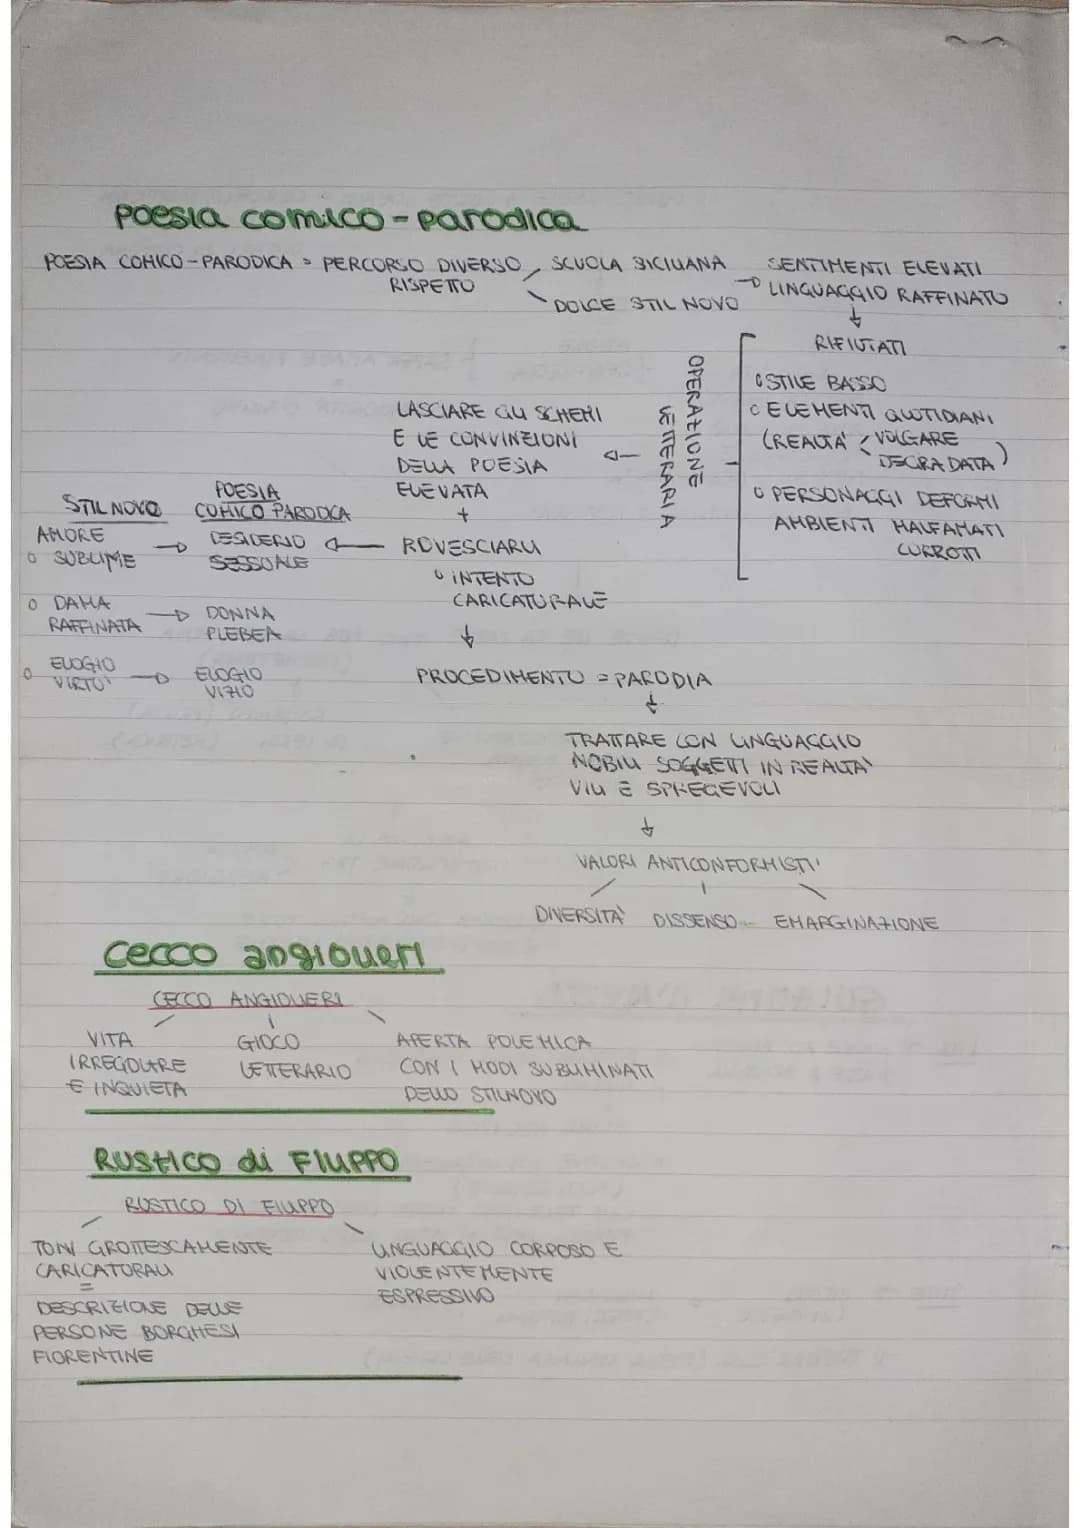 Poesia comico-parodica
POESIA COMICO-PARODICA = PERCORSO DIVERSO
RISPETTO
SCUOLA SICILIANA
DOLCE STIL NOVO
SENTIMENTI ELEVATI
LINGUAGGIO RAFFINATO
RIFIUTATI
STILE BASSO
ELEMENTI QUOTIDIANI
(REALTA' VOLGARE
DEGRADATA)
PERSONAGGI DEFORMI
AMBIENTI MALFAMATI
CORROTTI
OPERAZIONE
LETTERARIA
LASCIARE GLI SCHEMI
E LE CONVINZIONI
DELLA POESIA
ELEVATA
+
ROVESCIARLI
INTENTO
CARICATURALE
STILNOVO
POESIA
COMICO PARODICA
AMORE
SUBLIME
DESIDERIO
SESSUALE
DAMA
RAFFINATA
DONNA
PLEBEA
ELOGIO
VIRTU'
ELOGIO
VIZIO
PROCEDIMENTO = PARODIA
TRATTARE CON LINGUAGGIO
NOBILI SOGGETTI IN REALTA'
VILI E SPREGEVOLI
VALORI ANTICONFORMISTI
DIVERSITA' DISSENSO EMARGINAZIONE
Cecco angiolieri
CECCO ANGIOLIERI
VITA
IRREGOLARE
E INQUIETA
GIOCO
LETTERARIO
APERTA POLEMICA
CON I MODI SUBLIMINATI
DELLO STILNOVO
RUSTICO di FILIPPO
RUSTICO DI FILIPPO
TONI GROTTESCAMENTE
CARICATURALI
=
DESCRIZIONE DELLE
PERSONE BORGHESI
FIORENTINE
LINGUAGGIO CORPOSO E
VIOLENTEMENTE
ESPRESSIVO